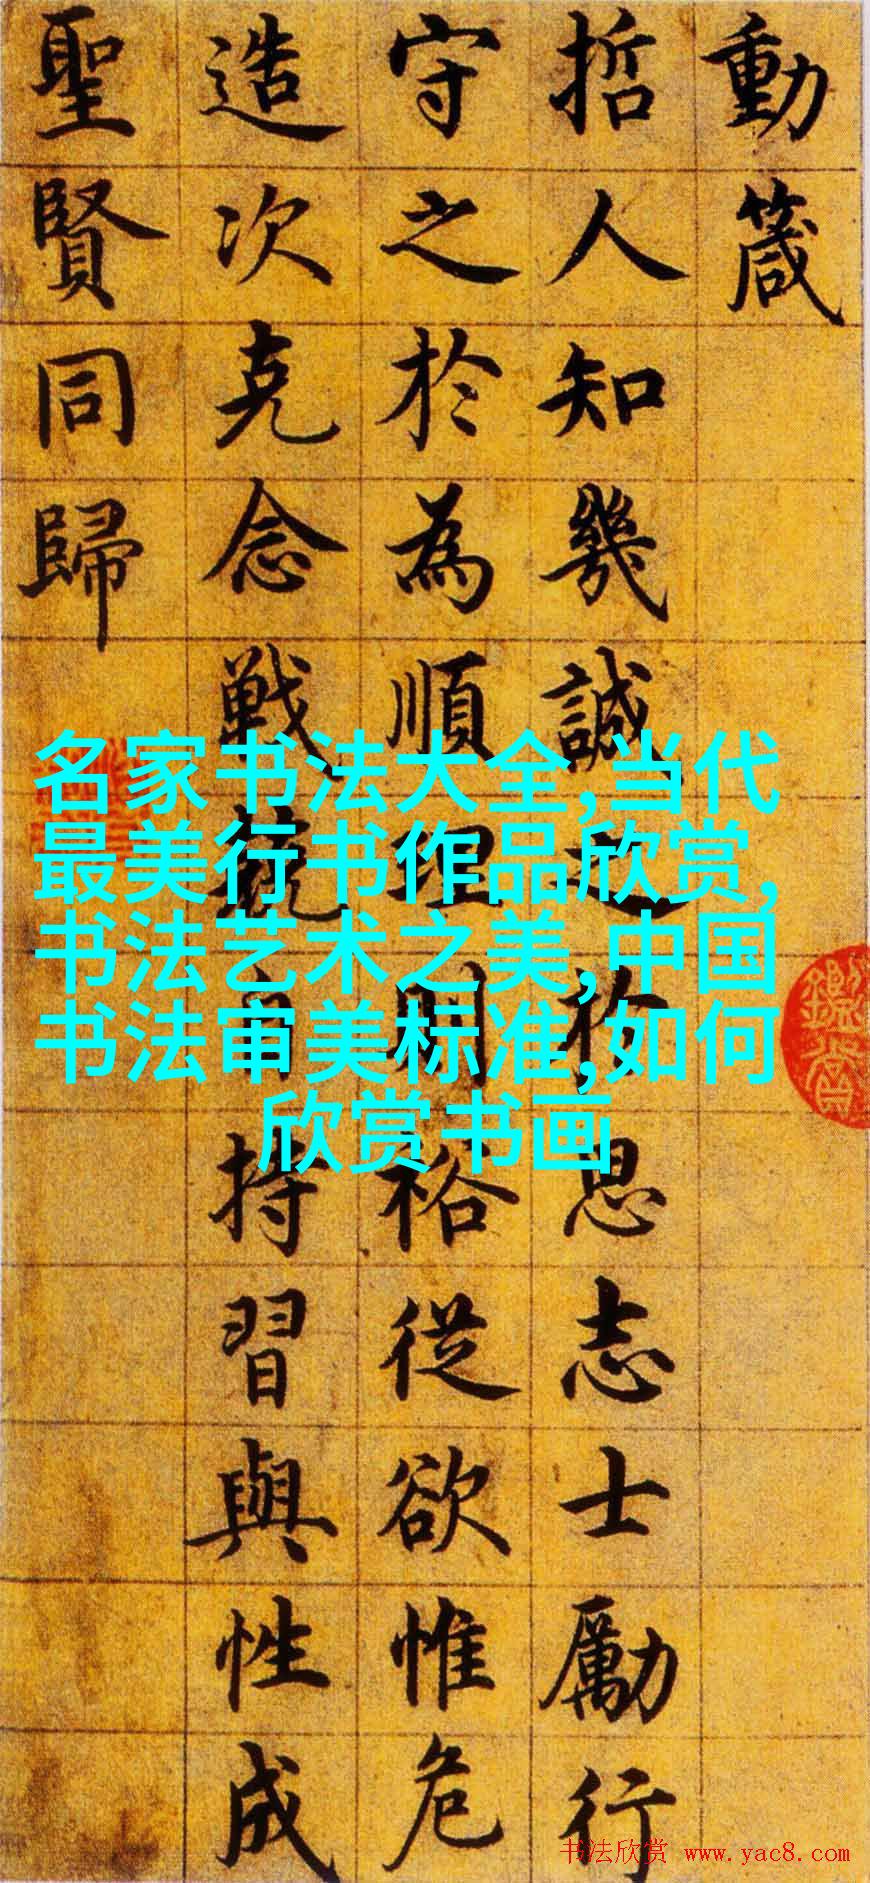 動箴
哲人知幾誠之於思志士勵行
守之於為順理則裕從欲惟危
造次克念戰兢自持習與性成
聖賢同歸
名家书法大全,当代
最美行书作品欣赏,
书法艺术之美,中国
书法审美标准,如何
欣赏书画
书法欣赏 www.yac8.com